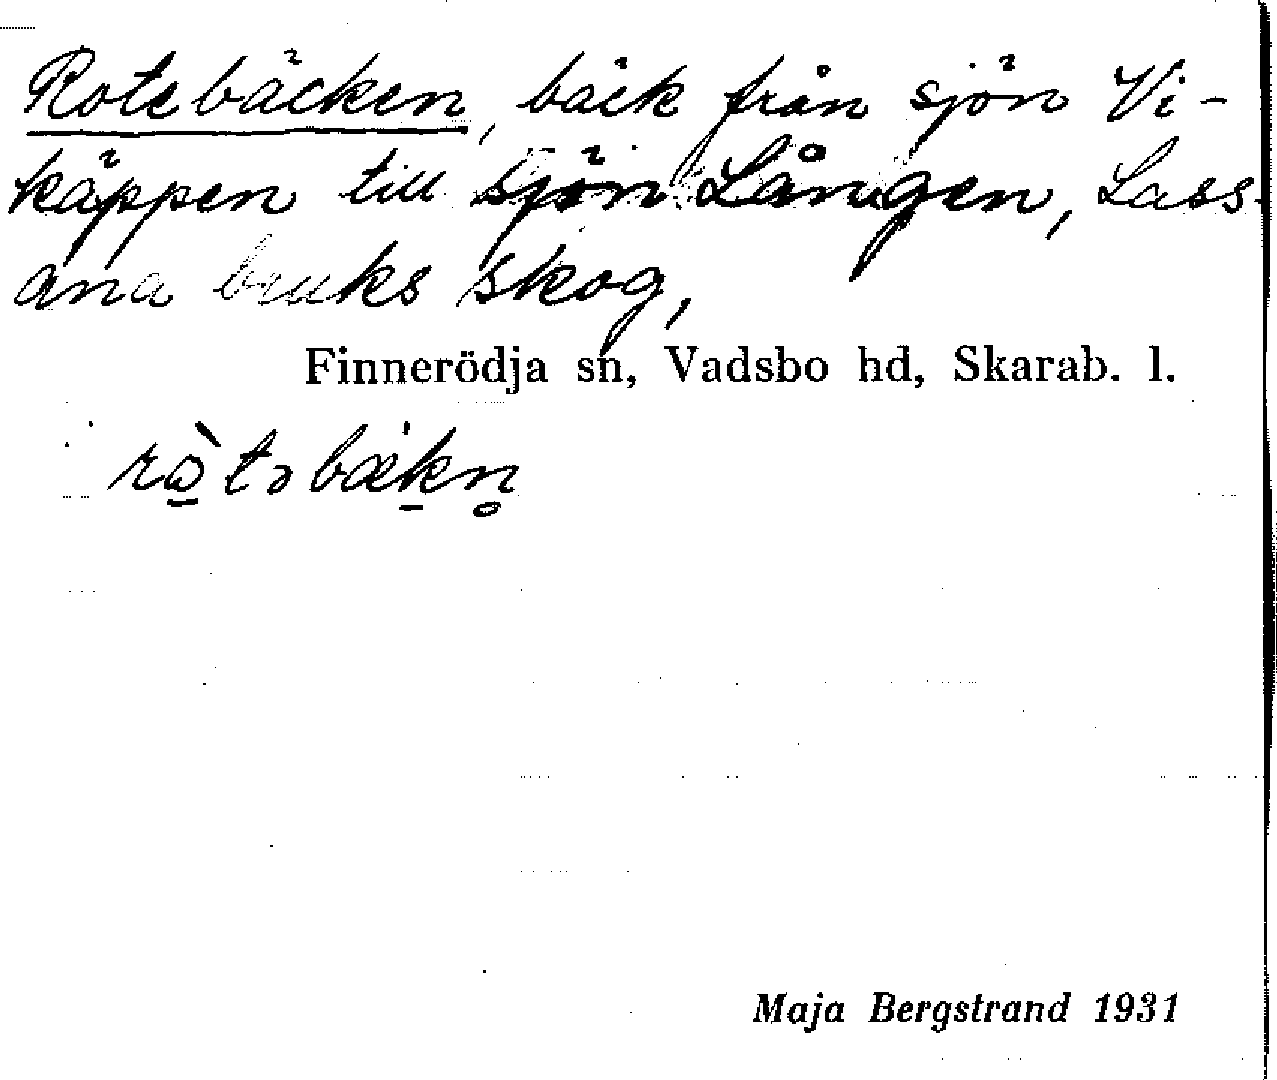 Rotebäcken, bäck från sjön Vi-
käppen till sjön Lången, Lass-
ana bruks skog,
Finnerödja sn, Vadsbo hd, Skarab. l.
rὼtəbæ̀kn̥
Maja Bergstrand 1931